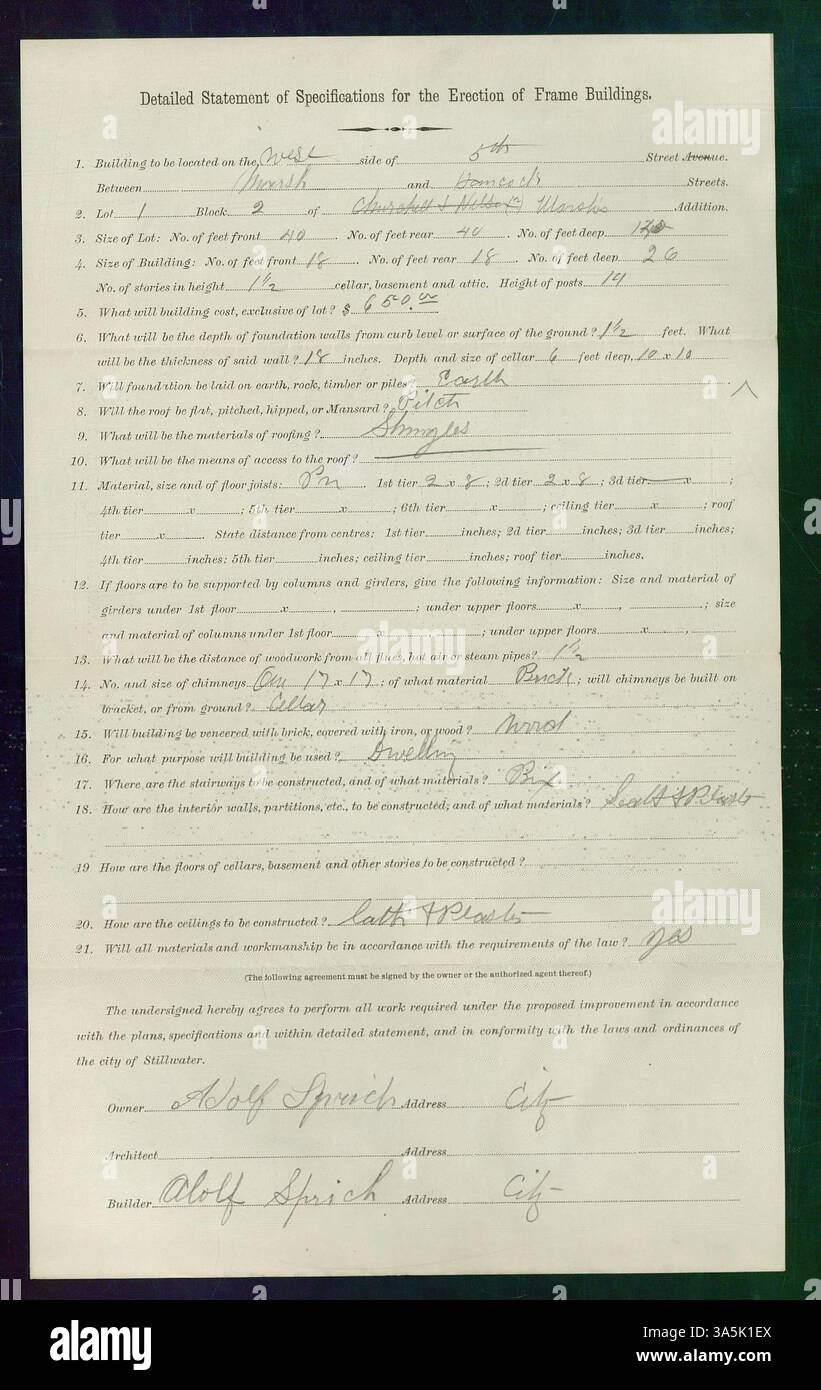 Detailed Statement of Specifications for the Erection of Frame Buildings.
1. Building to be located on the, West side of 5th Street Avenue.
Between Marsh and Hancock Streets.
2. Lot 1 Block 2 of Churchill & Nelson Marsh's Addition.
3. Size of Lot: No. of feet front 40 No. of feet rear 40 No. of feet deep
4. Size of Building: No. of feet front 18 No. of feet rear 18 No. of feet deep 26
No. of stories in height 1 1/2 cellar, basement and attic. Height of posts 14
5. What will building cost, exclusive of lot? $ 650.00
6. What will be the depth of foundation walls from curb level or surface of the ground? 1 1/2 feet. What
will be the thickness of said wall? 18 inches. Depth and size of cellar 6 feet deep, 10 x 10
7. Will foundation be laid on earth, rock, timber or piles? Earth
8. Will the roof be flat, pitched, hipped, or Mansard? Pitch
9. What will be the materials of roofing? Shingles
10. What will be the means of access to the roof?
11. Material, size and of floor joists: Pn 1st tier 2 x 8; 2d tier 2 x 8; 3d tier x ;
4th tier x ; 5th tier x ; 6th tier x ; ceiling tier x ; roof
tier x . State distance from centres: 1st tier inches; 2d tier inches; 3d tier inches;
4th tier inches: 5th tier inches; ceiling tier inches; roof tier inches.
12. If floors are to be supported by columns and girders, give the following information: Size and material of
girders under 1st floor x , ; under upper floors x , ; size
and material of columns under 1st floor x ; under upper floors x ,
13. What will be the distance of woodwork from all flues, hot air or steam pipes? 1 1/2
14. No. and size of chimneys One 17 x 17; of what material Brick; will chimneys be built on
bracket, or from ground? Cellar
15. Will building be veneered with brick, covered with iron, or wood? Wood
16. For what purpose will building be used? Dwelling
17. Where are the stairways to be constructed, and of what materials?
18. How are the interior walls, partitions, etc., to be constructed, and of what materials? & Plaster
19 How are the floors of cellars, basement and other stories to be constructed?
20. How are the ceilings to be constructed? Lath & Plaster
21. Will all materials and workmanship be in accordance with the requirements of the law? yes
(The following agreement must be signed by the owner or the authorized agent thereof.)
The undersigned hereby agrees to perform all work required under the proposed improvement in accordance
with the plans, specifications and within detailed statement, and in conformity with the laws and ordinances of
the city of Stillwater.
Owner Adolf Sprich Address City
Architect Address
Builder Adolf Sprich Address City
alamy
Image ID: 3A5K1EX
www.alamy.com